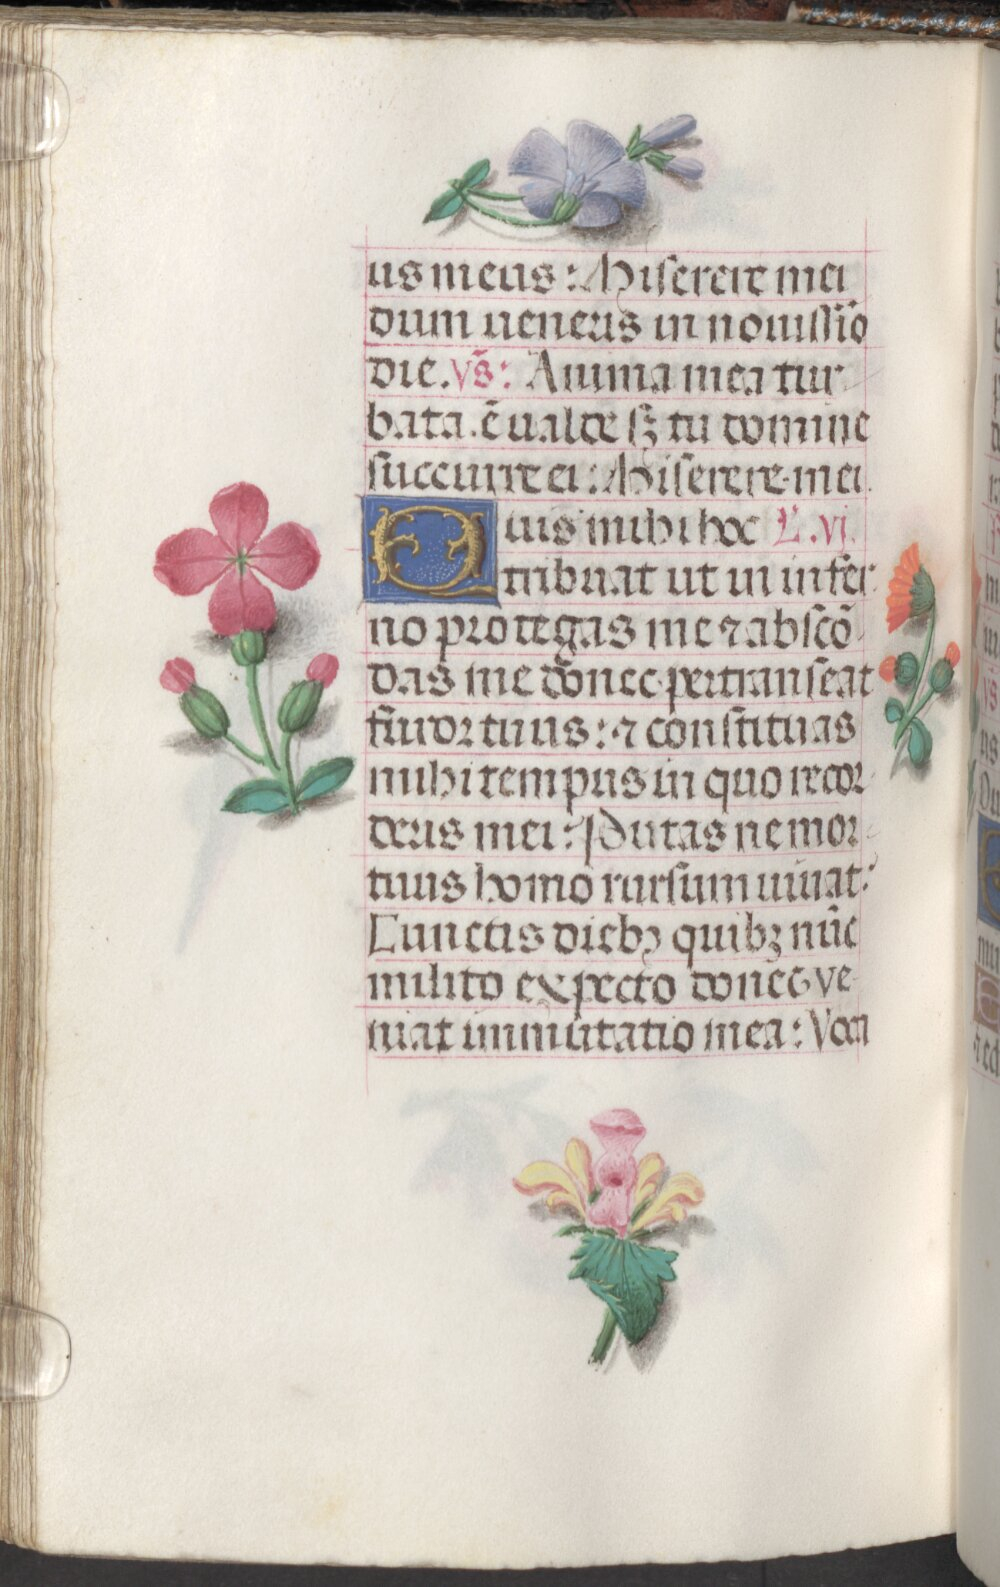 us meus: Miserere mei
dum ueneris in nouissīo
die. Vs̄: Anima mea tur
bata ē ualde sꝫ tu domine
succurre ei: Miserere mei.
Quis mihi hoc L. vj.
tribuat ut in infer
no protegas me ⁊ abscō
das me donec pertranseat
furor tuus: ⁊ constituas
mihi tempus in quo recor
deris mei: Putas ne mor
tuus homo rursum uiuat:
Cunctis diebꝫ quibꝫ nūc
milito expecto donec ve
niat immutatio mea: Voca